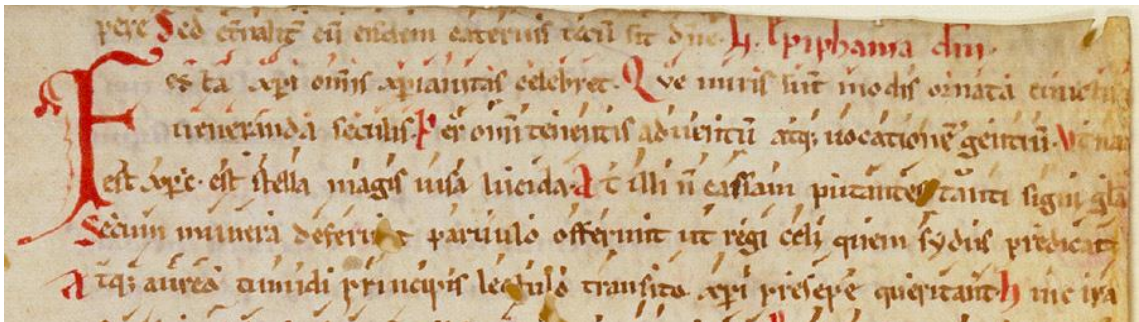 pere Sed et̄nalit̄ eū eisdem cateruis tecū sit dn̄e. In Epiphania dn̄i.
Festa xp̄i om̄is xp̄ianitas celebret. Que miris sūt modis ornata cunctisq;
ueneranda seculis. Per om̄itenentis aduentū atq; uocationē gentiū. Vt nat
est xp̄c est stella magis uisa lucida. At illi n̄ cassam putantes tanti signi glām
Secum munera deferūt paruulo offerunt ut regi celi quem sydus predicat
Atq; aureo tumidi principis lectulo transito xp̄i presepe queritant. Hinc ira